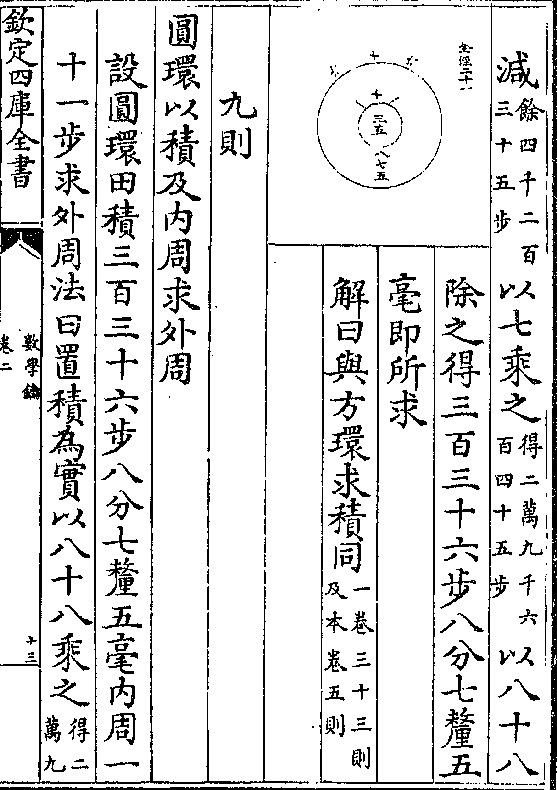 減餘四千二百三十五步以七乘之得二萬九千六百四十五步以八十八
除之得三百三十六步八分七釐五
毫即所求
解曰與方環求積同一卷三十三則及本卷五則
全徑二十一
十
三五
八七五
九則
圓環以積及内周求外周
設圓環田積三百三十六步八分七釐五毫内周一
十一步求外周法曰置積為實以八十八乘之得二萬九
欽定四庫全書
數學鑰
卷二
十三